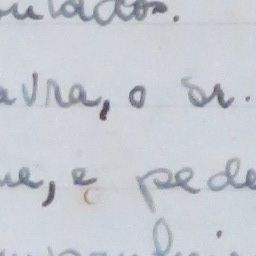 ulados.
avra, o sr.
ue, e pede